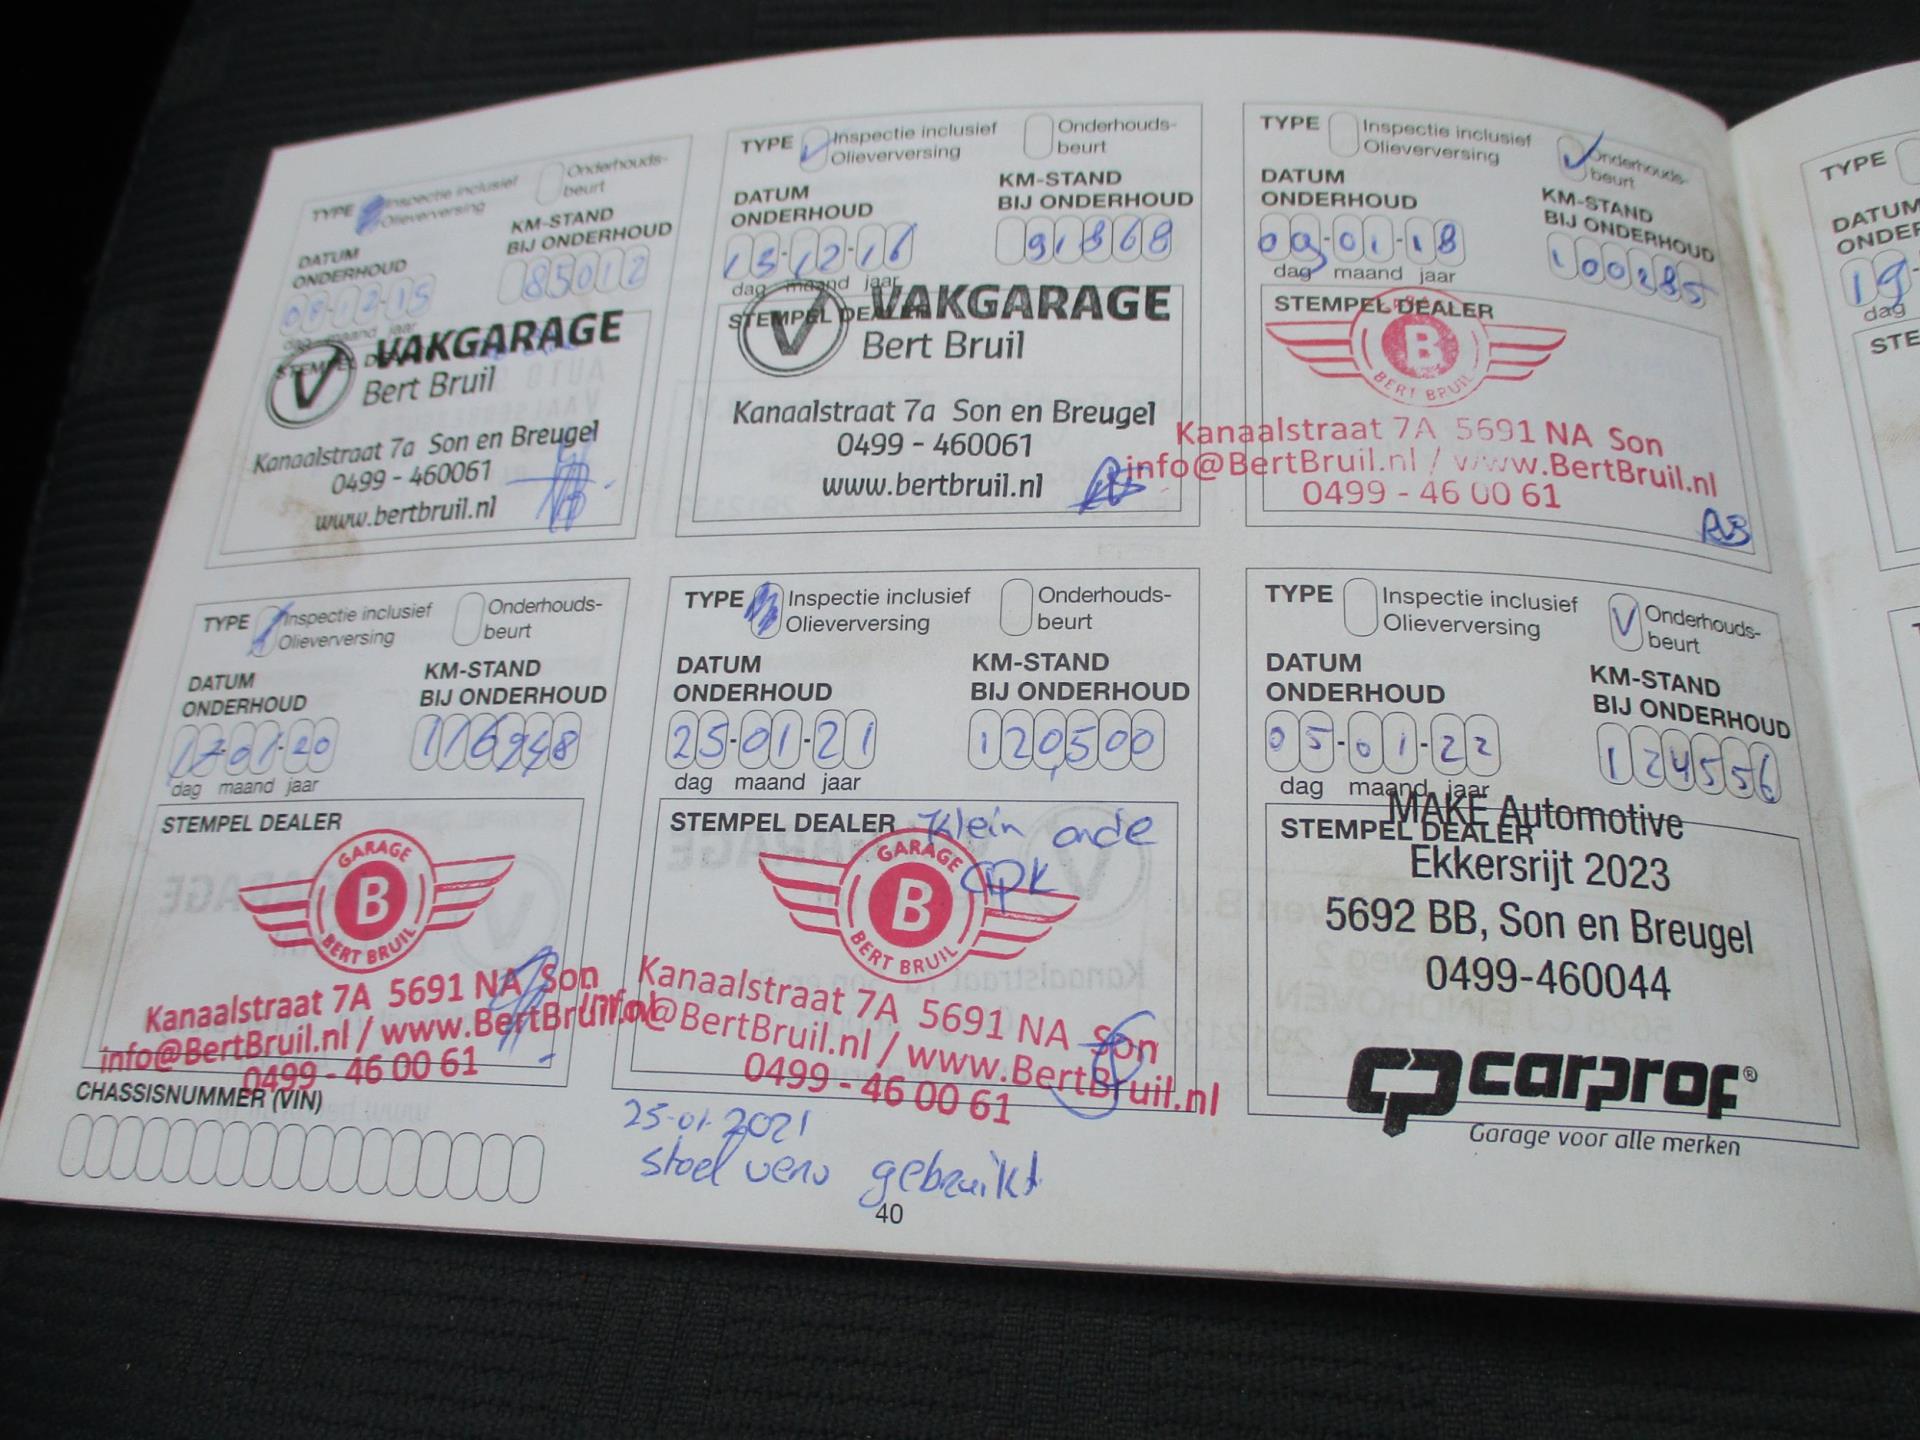 TYPE Inspectie inclusief Olieverversing Onderhouds-beurt
DATUM ONDERHOUD
KM-STAND BIJ ONDERHOUD
08-12-15
85012
dag maand jaar
STEMPEL DEALER
VAKGARAGE
Bert Bruil
Kanaalstraat 7a Son en Breugel
0499 - 460061
www.bertbruil.nl
TYPE Inspectie inclusief Olieverversing Onderhouds-beurt
DATUM ONDERHOUD
KM-STAND BIJ ONDERHOUD
13-12-16
91868
dag maand jaar
STEMPEL DEALER
VAKGARAGE
Bert Bruil
Kanaalstraat 7a Son en Breugel
0499 - 460061
www.bertbruil.nl
TYPE Inspectie inclusief Olieverversing Onderhouds-beurt
DATUM ONDERHOUD
KM-STAND BIJ ONDERHOUD
09-01-18
100285
dag maand jaar
STEMPEL DEALER
B
BERT BRUIL
Kanaalstraat 7A 5691 NA Son
info@BertBruil.nl / www.BertBruil.nl
0499 - 46 00 61
RB
TYPE Inspectie inclusief Olieverversing Onderhouds-beurt
DATUM ONDERHOUD
KM-STAND BIJ ONDERHOUD
17-01-20
116948
dag maand jaar
STEMPEL DEALER
GARAGE
B
BERT BRUIL
Kanaalstraat 7A 5691 NA Son
info@BertBruil.nl / www.BertBruil.nl
0499 - 46 00 61
CHASSISNUMMER (VIN)
TYPE Inspectie inclusief Olieverversing Onderhouds-beurt
DATUM ONDERHOUD
KM-STAND BIJ ONDERHOUD
25-01-21
120,500
dag maand jaar
STEMPEL DEALER
Klein onde
APK
GARAGE
B
BERT BRUIL
Kanaalstraat 7A 5691 NA Son
info@BertBruil.nl / www.BertBruil.nl
0499 - 46 00 61
25-01-2021
gebruikt
40
TYPE Inspectie inclusief Olieverversing Onderhouds-beurt
DATUM ONDERHOUD
KM-STAND BIJ ONDERHOUD
05-01-22
124556
dag maand jaar
STEMPEL DEALER
MAKE Automotive
Ekkersrijt 2023
5692 BB, Son en Breugel
0499-460044
carprof®
Garage voor alle merken
TYPE
DATUM
19
dag